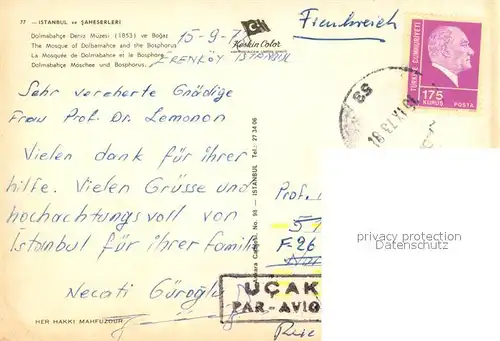 77 - ISTANBUL ve ŞAHESERLERİ
Dolmabahçe - Deniz Müzesi (1853) ve Boğaz
The Mosque of Dolbamahce and the Bosphorus
La Mosquée de Dolmabahce et le Bosphore
Dolmabahçe Moschee und Bosphorus.
Keskin Color
Frankreich
15-9-7
ERENKÖY İSTANBUL
TÜRKİYE CUMHURİYETİ
175
KURUŞ POSTA
Sehr verehrte Gnädige
Frau Prof. Dr. Lemonon
Vielen dank für ihrer
hilfe. Vielen Grüsse und
hochachtungsvoll von
İstanbul für ihrer famili
Necati Güroğlu
Ankara Caddesi, No. 98 - İSTANBUL Tel.: 27 34 06
Prof.
F-26
privacy protection
Datenschutz
UÇAK
PAR-AVIO
HER HAKKI MAHFUZDUR